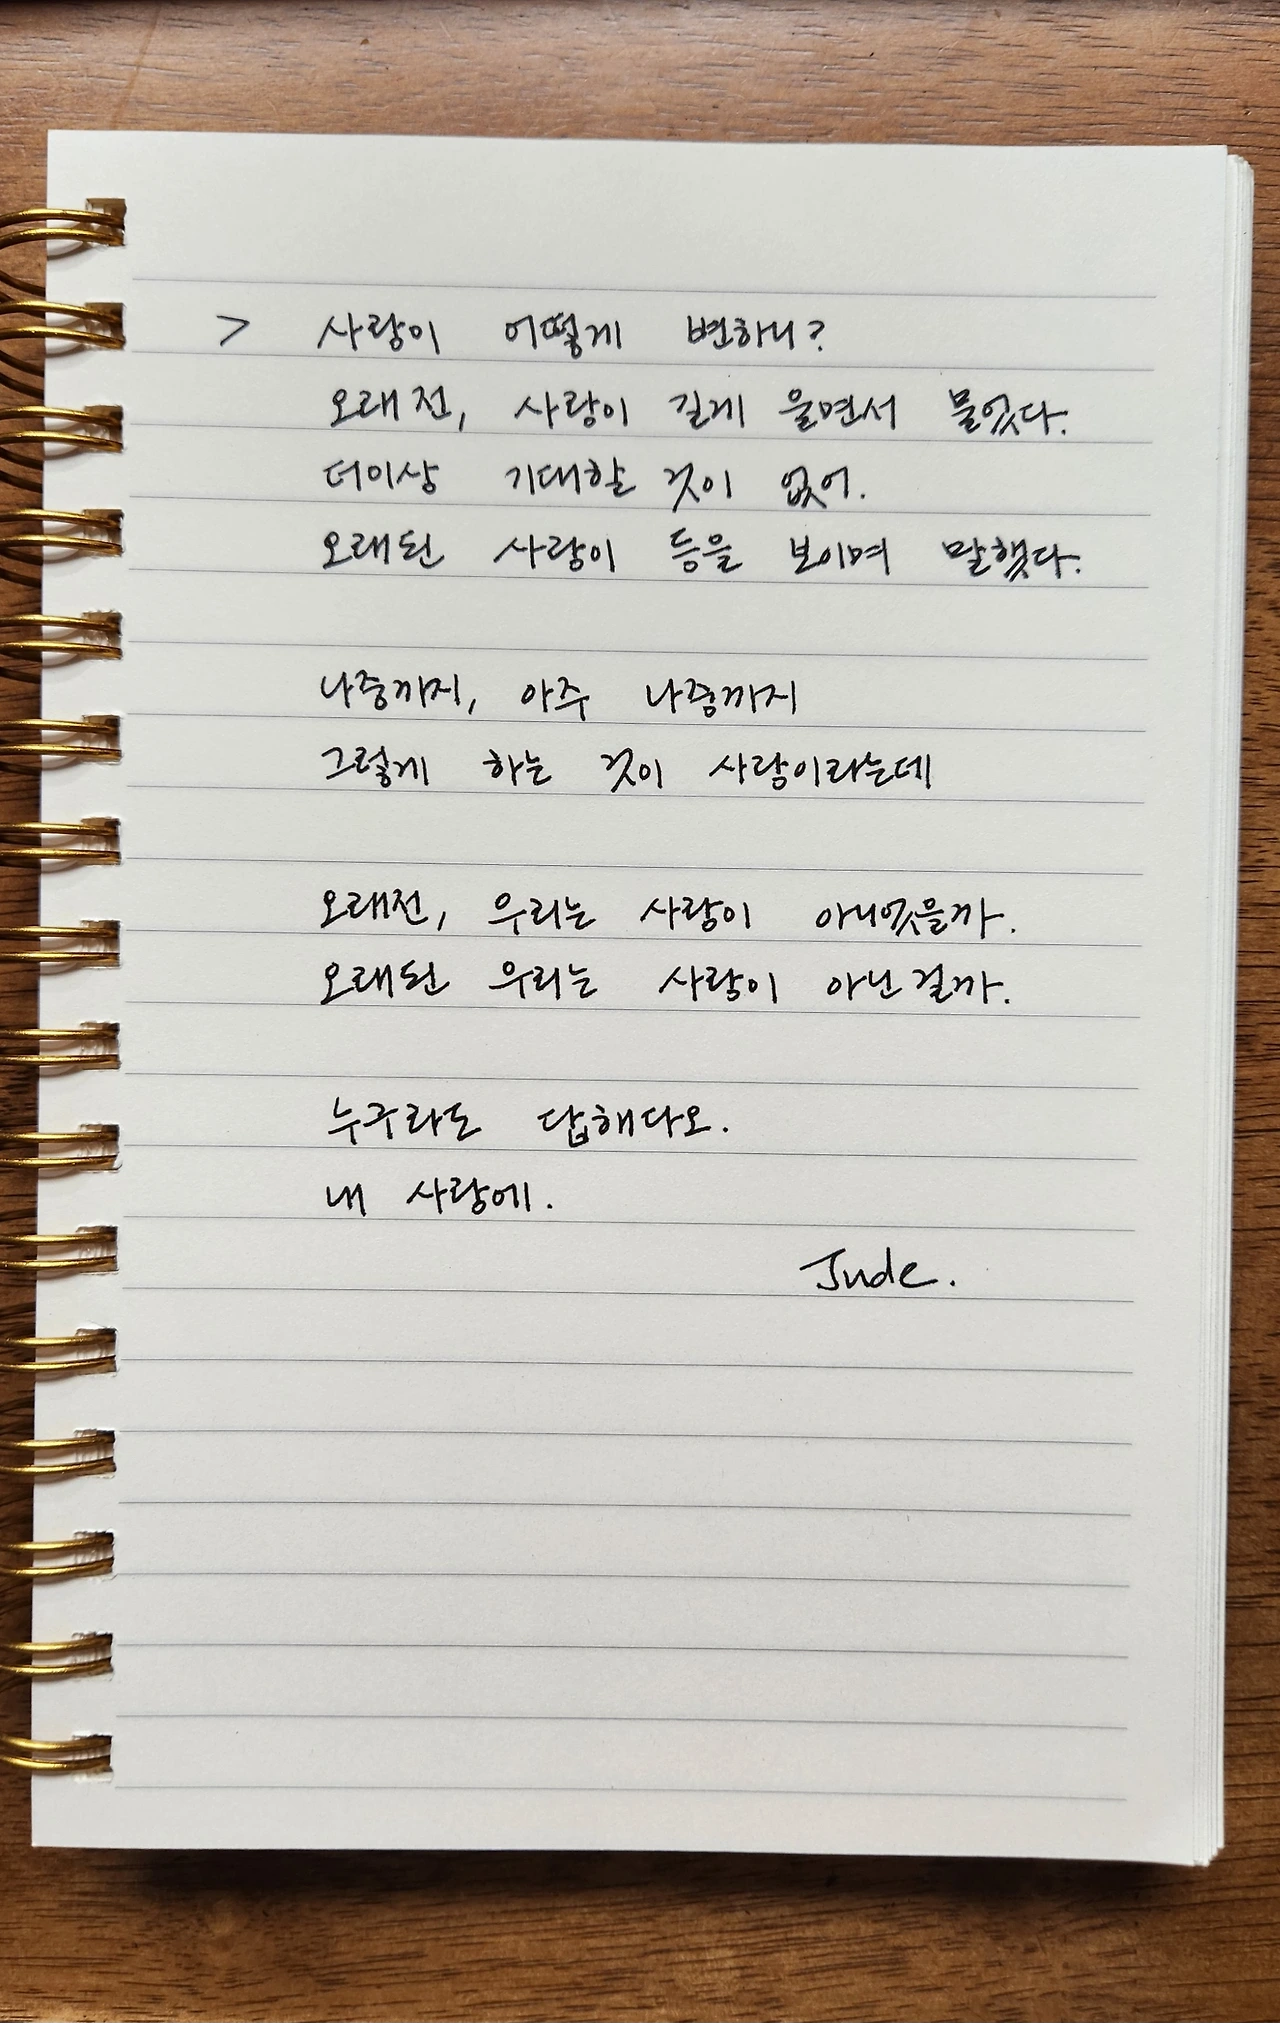 > 사랑이 어떻게 변하니?
오래전, 사랑이 길게 울면서 물었다.
더이상 기대할 것이 없어.
오래된 사랑이 등을 보이며 말했다.
나중까지, 아주 나중까지
그렇게 하는 것이 사랑이라는데
오래전, 우리는 사랑이 아니었을까.
오래된 우리는 사랑이 아닌걸까.
누구라도 답해다오.
내 사랑에.
Jude.